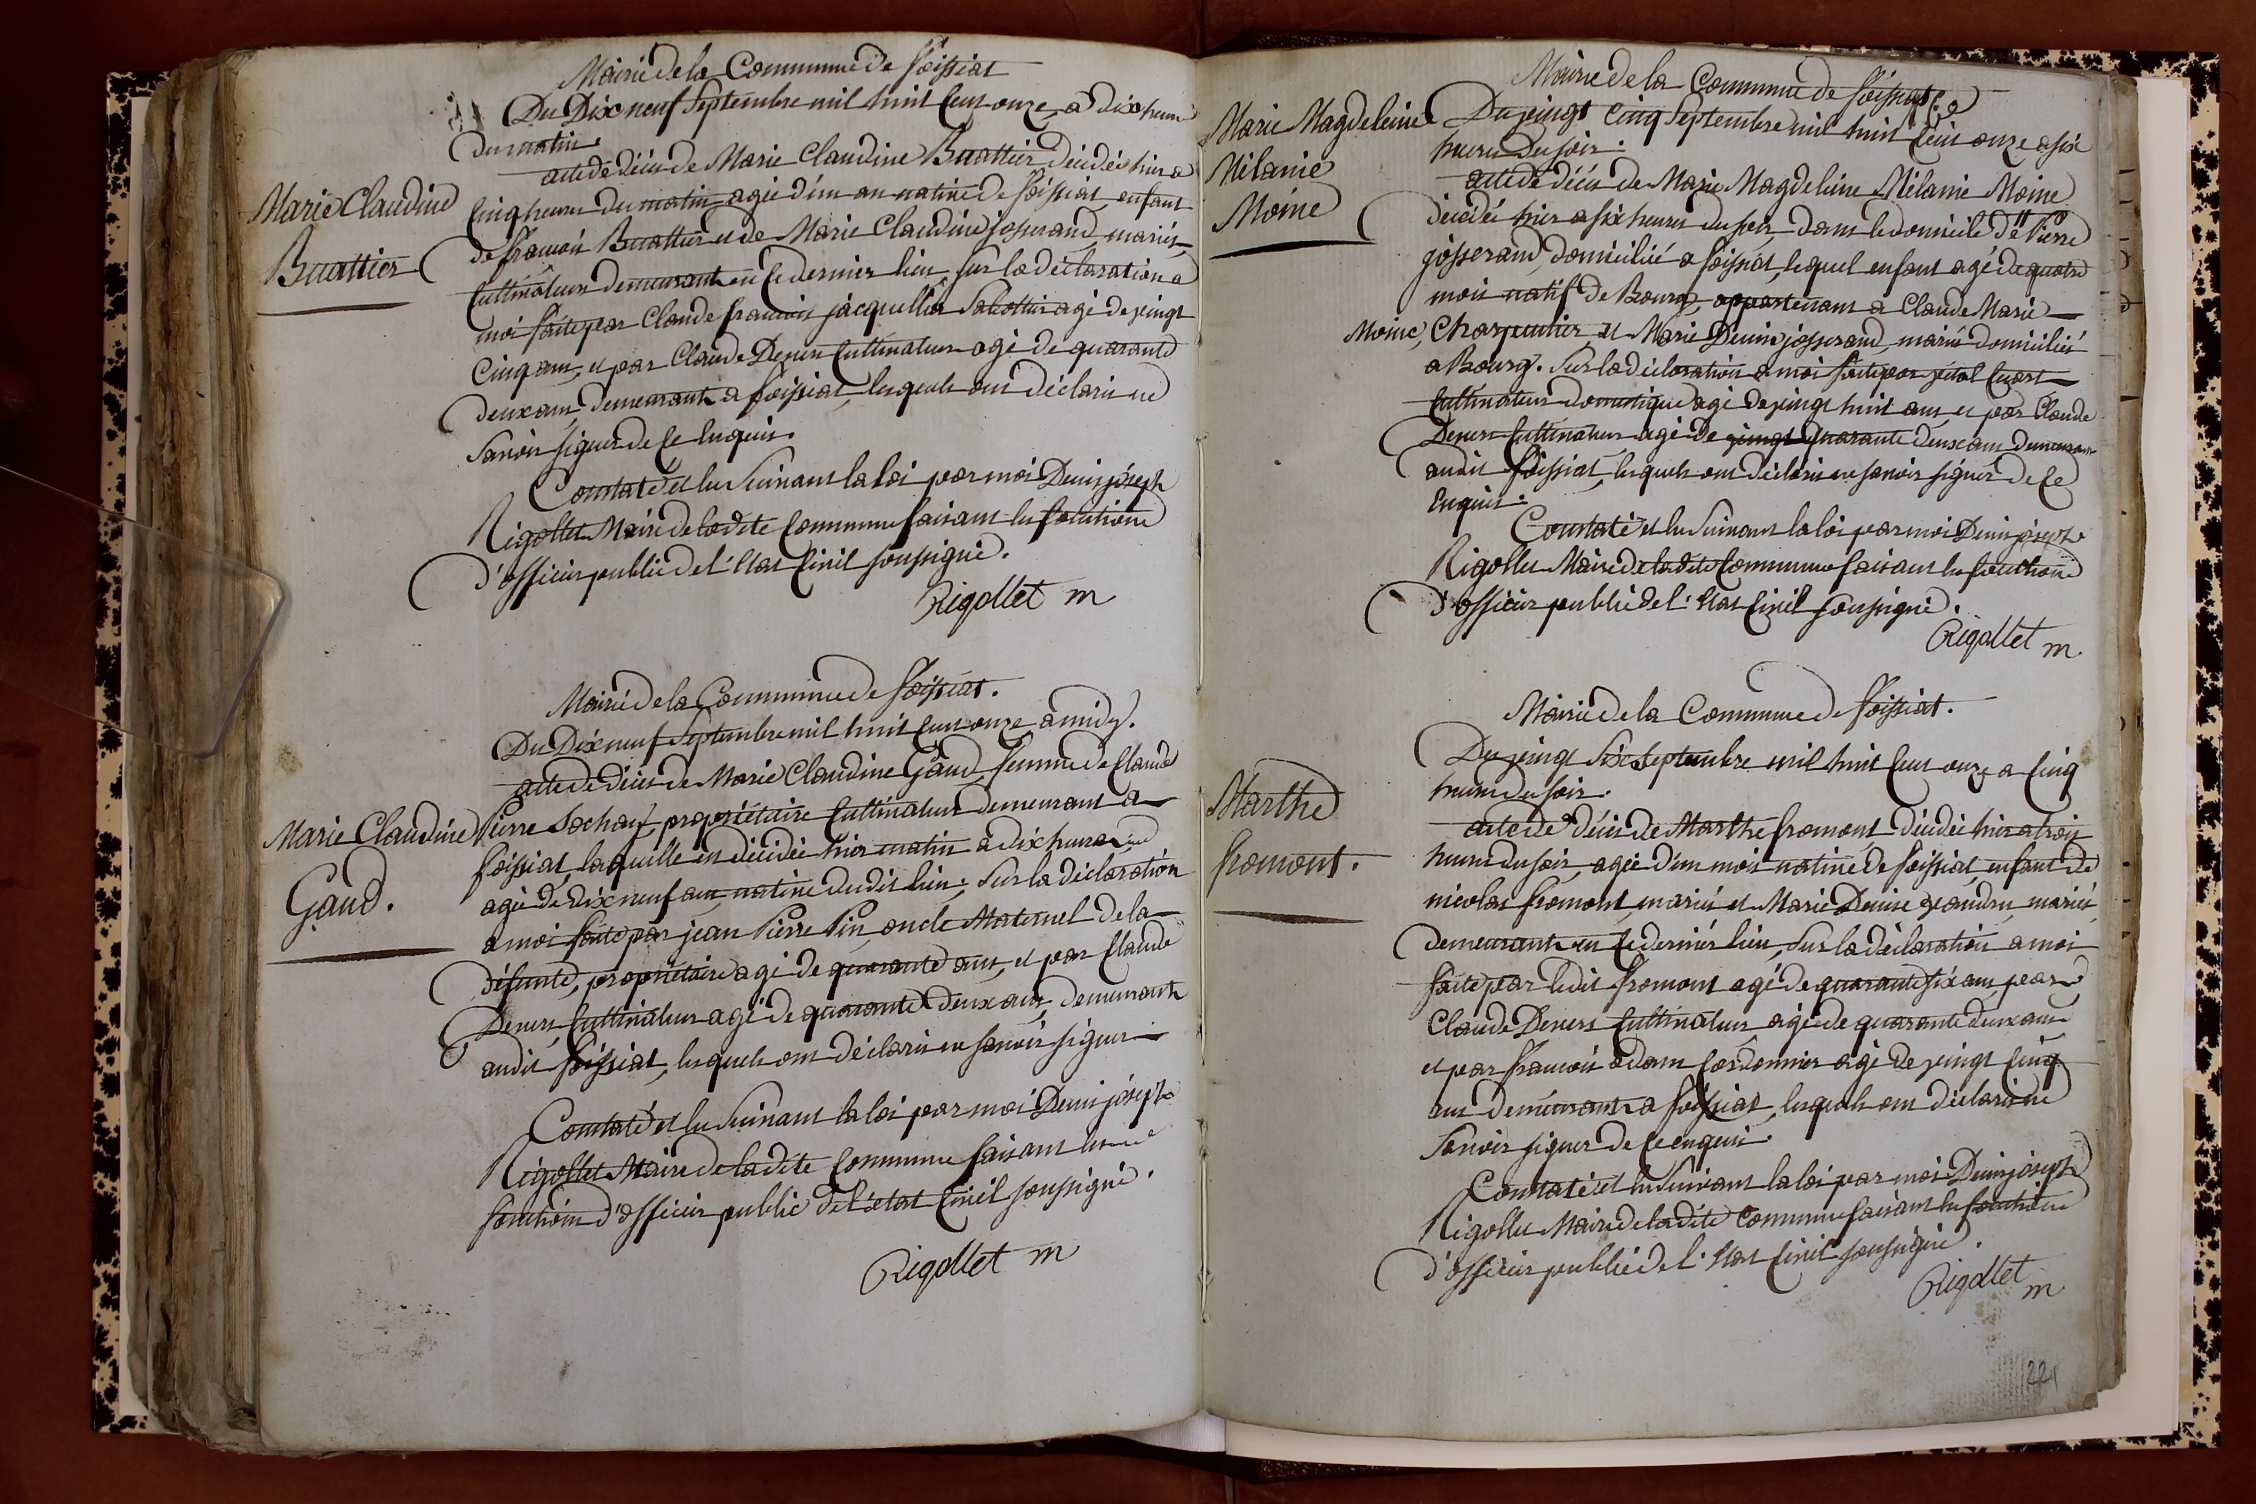 Mairie de la Commune de foissiat
Du Dix neuf Septembre mil huit Cent onze, a dix heures
du matin.
acte de décès de Marie Claudine Buattier décédée hier a
Marie Claudine
Buattier
Cinq heures du matin agée d'un an native de foissiat, enfant
de françois Buattier et de Marie Claudine josserand, mariés,
Cultivateurs demeurant en Ce dernier lieu, sur la déclaration a
moi faite par Claude françois jacquellin Sabottier agé de vingt
Cinq ans, et par Claude Depers Cultivateur agé de quarante
deux ans, demeurants a foissiat, lesquels ont déclaré ne
savoir signer de Ce Enquis.
Constaté et lu Suivant la loi par moi Denis joseph
Rigollet Maire de ladite Commune faisant les fonctions
d'officier public de l'Etat Civil soussigné.
Rigollet m
Mairie de la Commune de foissiat.
Du Dix neuf Septembre mil huit Cent onze a midy.
acte de décès de Marie Claudine Gaud, femme de Claude
Marie Claudine
Gaud.
Pierre Sochay, propriétaire Cultivateur demeurant a
foissiat, laquelle est décédée hier matin a dix heures
agée de dix neuf ans, native dudit lieu; Sur la déclaration
a moi faite par jean Pierre Pin, oncle Maternel de la
défunte, propriétaire agé de quarante ans, et par Claude
Depers Cultivateur agé de quarante deux ans, demeurants
audit foissiat, lesquels ont déclaré ne savoir signer
Constaté et lu Suivant la loi par moi Denis joseph
Rigollet Maire de ladite Commune faisant les
fonctions d'officier public de l'état Civil soussigné.
Rigollet m
Mairie de la Commune de foissiat.
Du vingt Cinq Septembre mil huit Cent onze a six
heures du soir.
Marie Magdeleine
Mélanie
Moine
acte de décès de Marie Magdeleine Mélanie Moine
décédée hier a six heures du soir, dans le domicile de Pierre
josserand, domicilié a foissiat, lequel enfant agé de quatre
mois natif de Bourg, appartenant a Claude Marie
Moine, Charpentier, et Marie Denise josserand, mariés domiciliés
a Bourg. Sur la déclaration a moi faite par
Cultivateur domestique agé de vingt huit ans, et par Claude
Depers Cultivateur agé de vingt quarante deux ans demeurant
audit foissiat, lesquels ont déclaré ne savoir signer de Ce
Enquis.
Constaté et lu Suivant la loi par moi Denis joseph
Rigollet Maire de ladite Commune faisant les fonctions
d'officier public de l'Etat Civil soussigné.
Rigollet m
Mairie de la Commune de foissiat.
Du vingt Six Septembre mil huit Cent onze a Cinq
heures du soir.
Marthe
fromont.
acte de décès de Marthe fromont, décédée hier a trois
heures du soir, agée d'un mois native de foissiat, enfant de
nicolas fromont, mariés et Marie Denise mariés
demeurants en Ce dernier lieu, Sur la déclaration a moi
faite par ledit fromont agé de quarante six ans, par
Claude Depers Cultivateur agé de quarante deux ans
et par françois adam Cordonnier agé de vingt Cinq
ans demeurants a foissiat, lesquels ont déclaré ne
savoir signer de Ce enquis.
Constaté et lu Suivant la loi par moi Denis joseph
Rigollet Maire de ladite Commune faisant les fonctions
d'officier public de l'Etat Civil soussigné.
Rigollet m
221